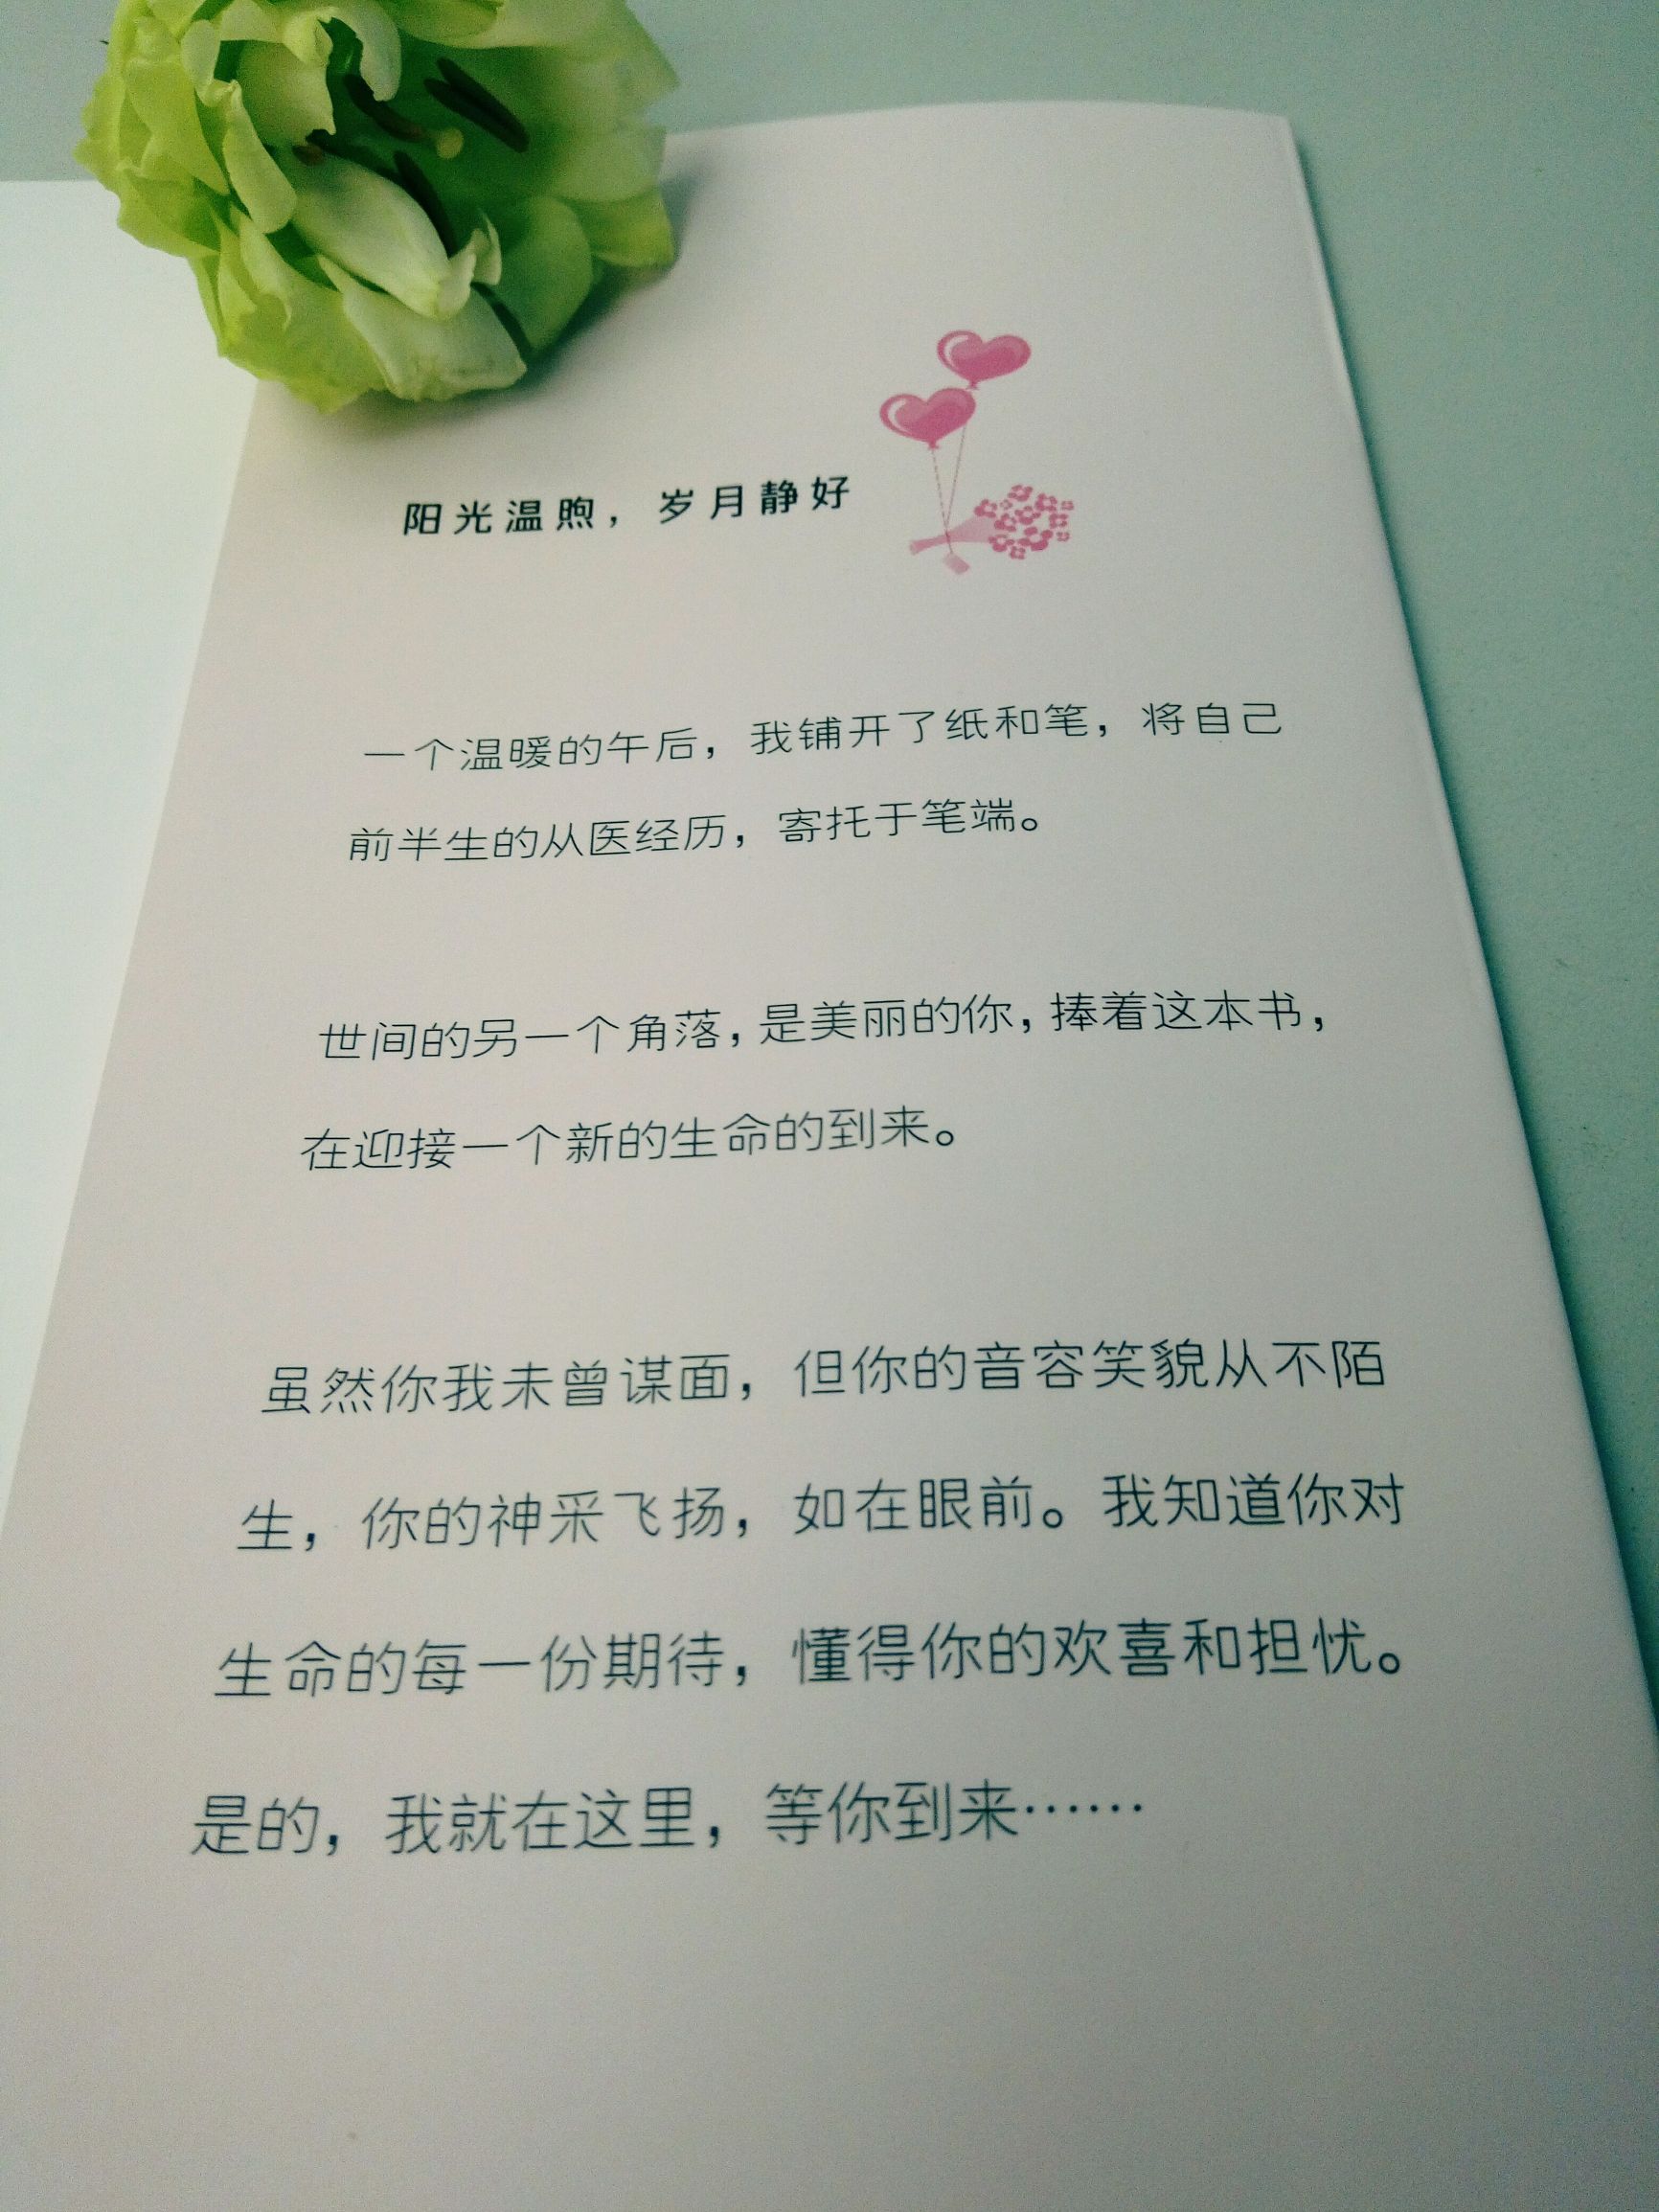 阳光温煦，岁月静好
一个温暖的午后，我铺开了纸和笔，将自己
前半生的从医经历，寄托于笔端。
世间的另一个角落，是美丽的你，捧着这本书，
在迎接一个新的生命的到来。
虽然你我未曾谋面，但你的音容笑貌从不陌
生，你的神采飞扬，如在眼前。我知道你对
生命的每一份期待，懂得你的欢喜和担忧。
是的，我就在这里，等你到来……